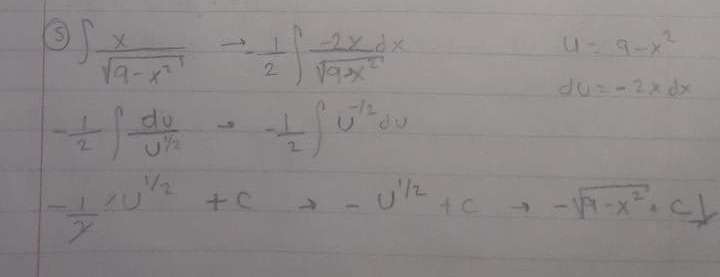 ⑤ ∫ x/√(9-x²) → -1/2 ∫ -2x dx/√(9-x²) u = 9-x²
du = -2x dx
-1/2 ∫ du/u^(1/2) → -1/2 ∫ u^(-1/2) du
-1/2 · 2u^(1/2) + c → - u^(1/2) + c → -√(9-x²) + C